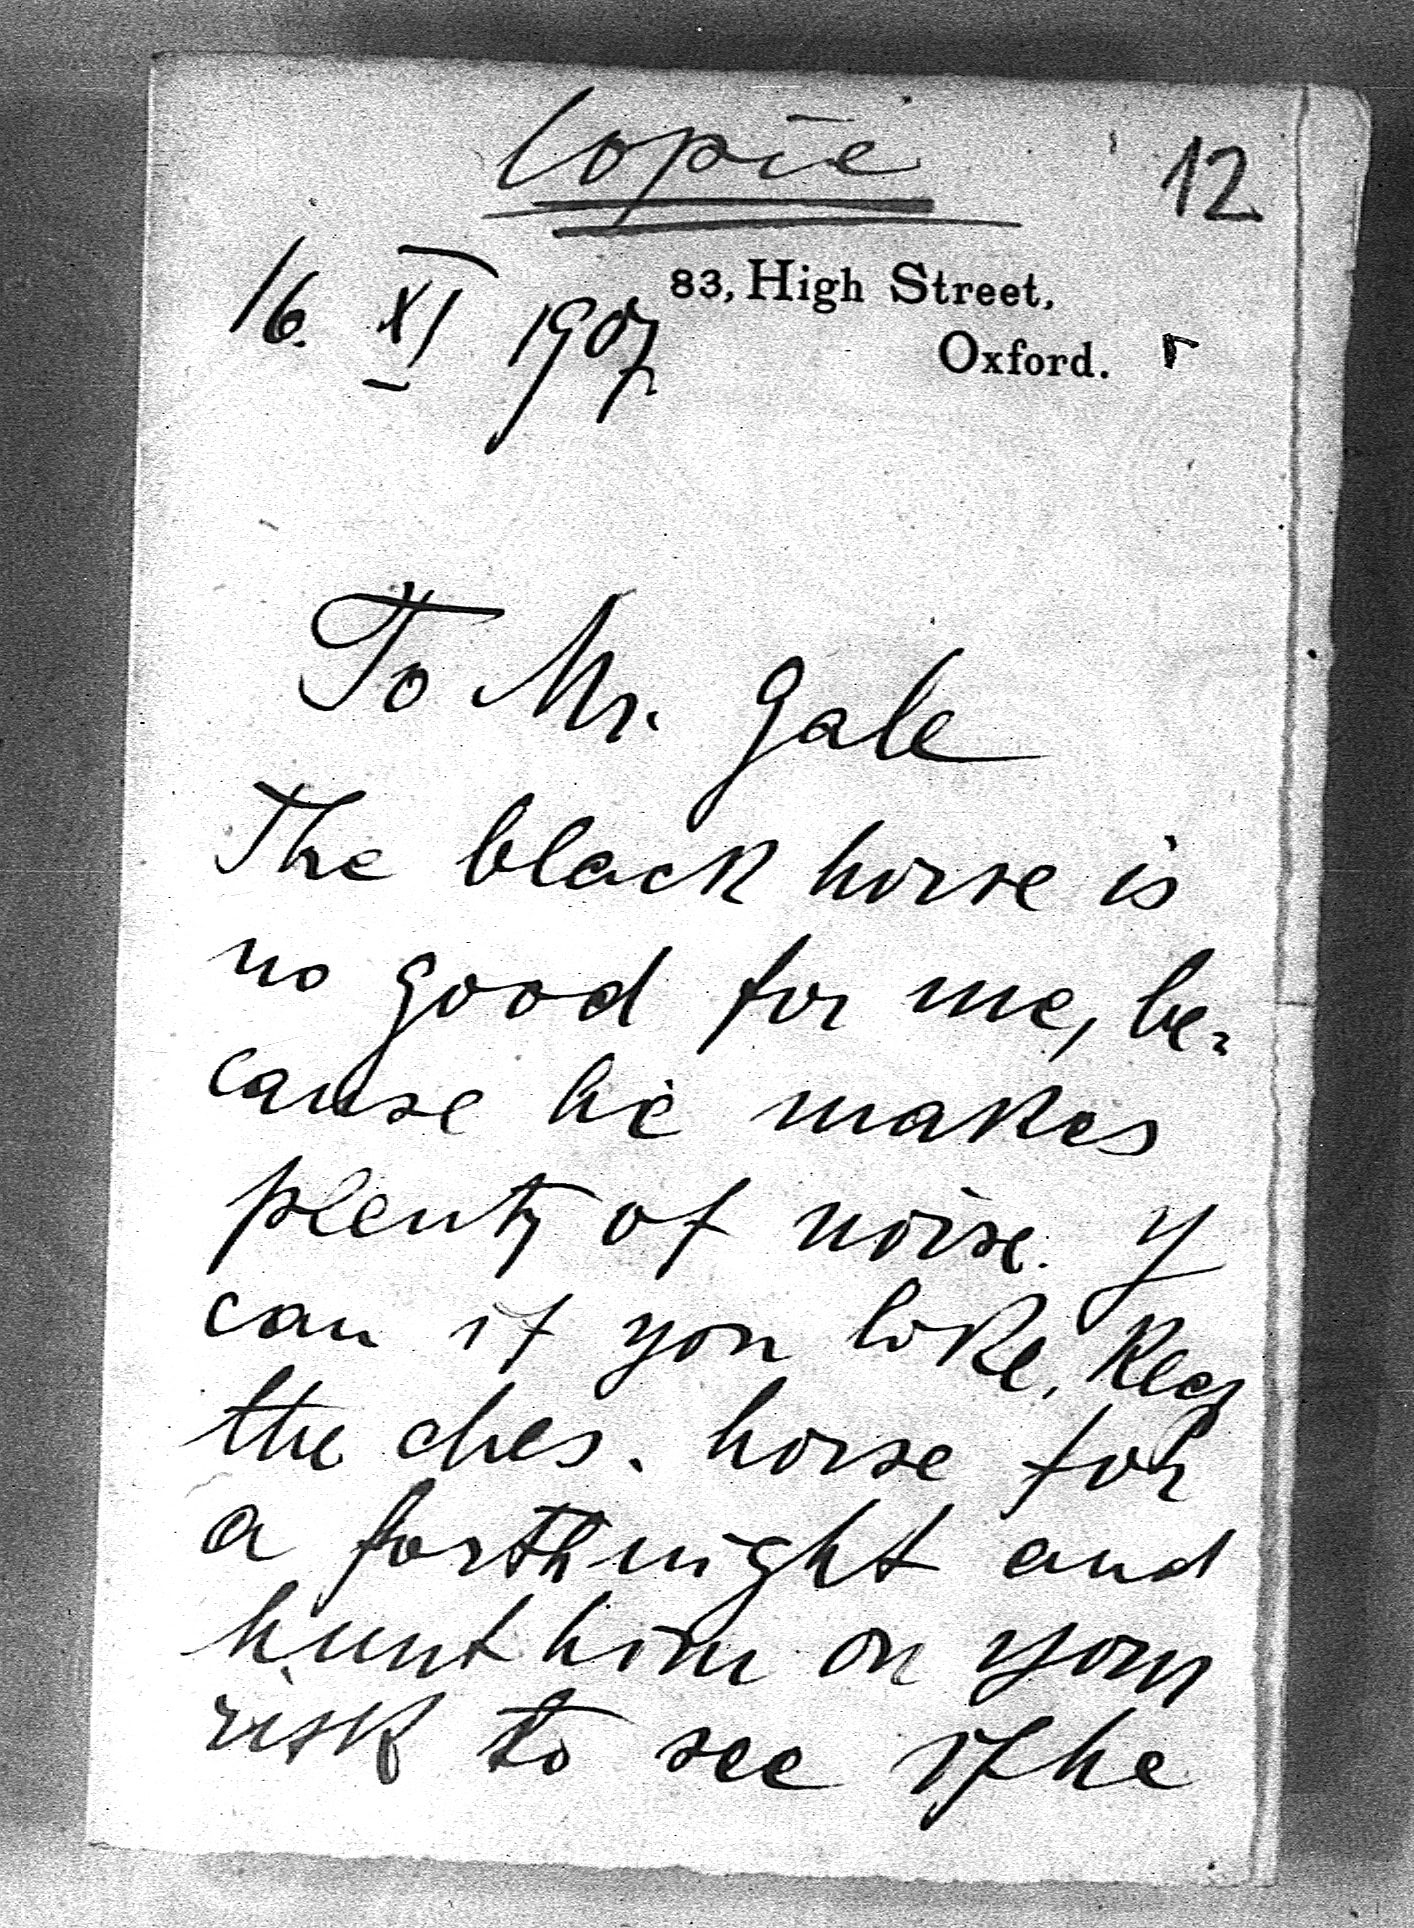 Copie
12
83, High Street,
Oxford.
16. XI 1907
To Mr. Gale
The black horse is
no good for me, be=
cause he makes
plenty of noise. Y
can if you like, keep
the ches. horse for
a forthnight and
hunt him on your
risk to see if he